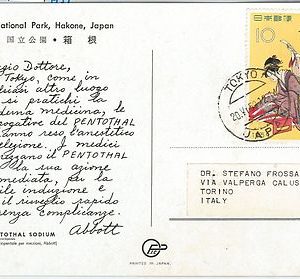 ational Park, Hakone, Japan
国立公園・箱根
gio Dottore,
Tokyo, come in
lsiasi altro luogo
si pratichi la
derna medicina, le
rogative del PENTOTHAL
anno reso l'anestetico
elezione. I medici
rezzano il PENTOTHAL
la sua azione
mediata, per la
ile induzione e
il risveglio rapido
senza complicanze.
Abbott
TOTHAL SODIUM
PRINTED IN JAPAN.
日本郵便
10
TOKYO
JAP
DR. STEFANO FROSSA
VIA VALPERGA CALUS
TORINO
ITALY